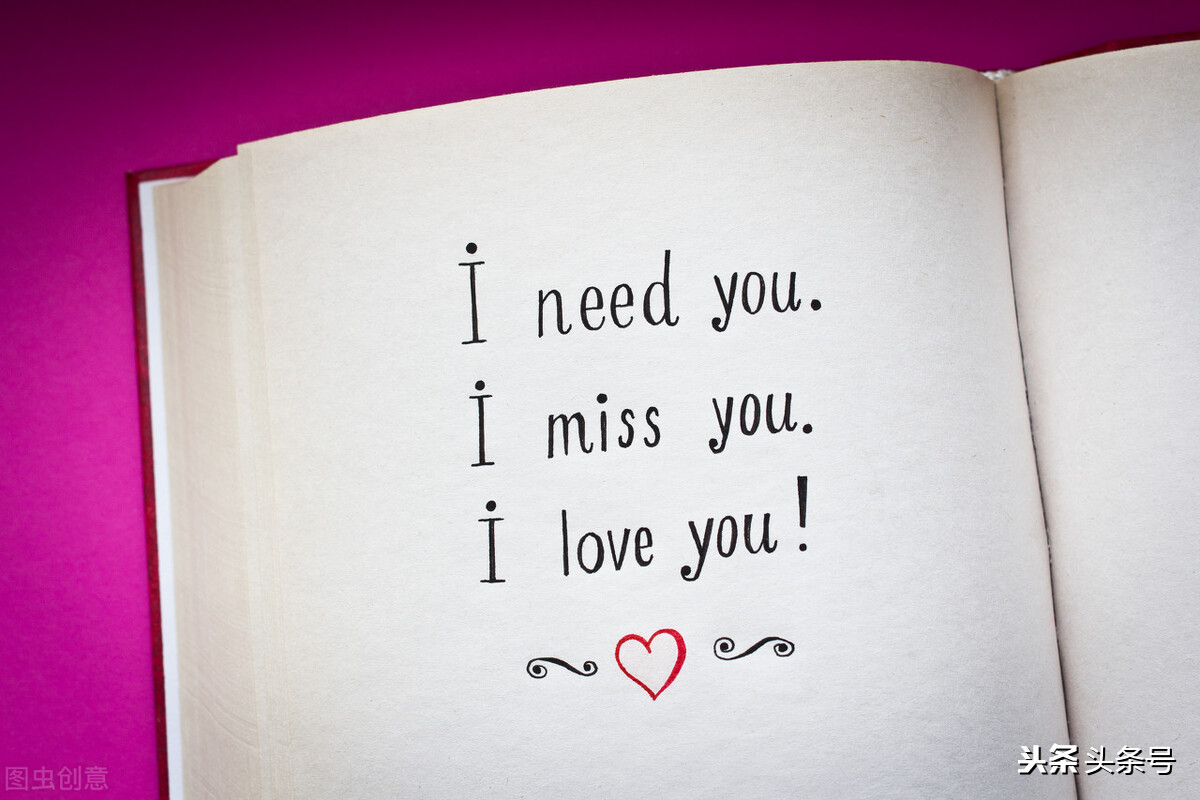 İ need you.
İ miss you.
İ love you!
图虫创意
头条 头条号